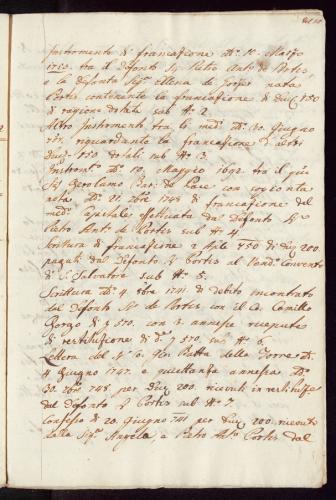 Instromento di francazione dto. 10. Marzo
1723. tra il Defonto Sr. Pietro Antº. de Portis
la Defonta Sigª. Ellena de nata
Portis contenente la francazione di Ducti. 750
di ragione dotale sub Nº. 2.
Altro Instromento tra li medmi. dto. 30. Giugno
riguardante la francazione d'altri
Duc. 750 dotali sub Nº. 3.
Instromto. dto. 10. Maggio 1692 tra il qm.
Sr. Gerolamo Bar. de con
nota dto. 21. 7bre 1748 di francazione del
medmo. Capitale effettuata da Defonto Sr.
Pietro Antº. de Portis sub Nº. 4.
Scrittura di francazione 2 Aple 1750 di Duc. 200.
pagati dal Defonto Sr. Portis al Vendo. Convento
di S. Salvatore sub Nº. 5.
Scrittura dto. 4 8bre 1741. di debito incontrato
dal Defonto Sr. de Portis con il Co. Camillo
Gorgo di 570. con 3. annesse recepute
di restituzione di d. 570. sub Nº. 6.
Lettera del N. Co. Gio: Batta della Torre dto.
4 Giugno 1747. e quiettanza annessa dto.
30. 7bre 748 per Duc. 200. ricevuti in restituzne.
dal Defonto Sr. Portis sub Nº. 7.
Confesso di 20. Giugno 741 per Duc. 200 ricevuto
dalla Sigª. Angela, e Pietro Antº. Portis dal